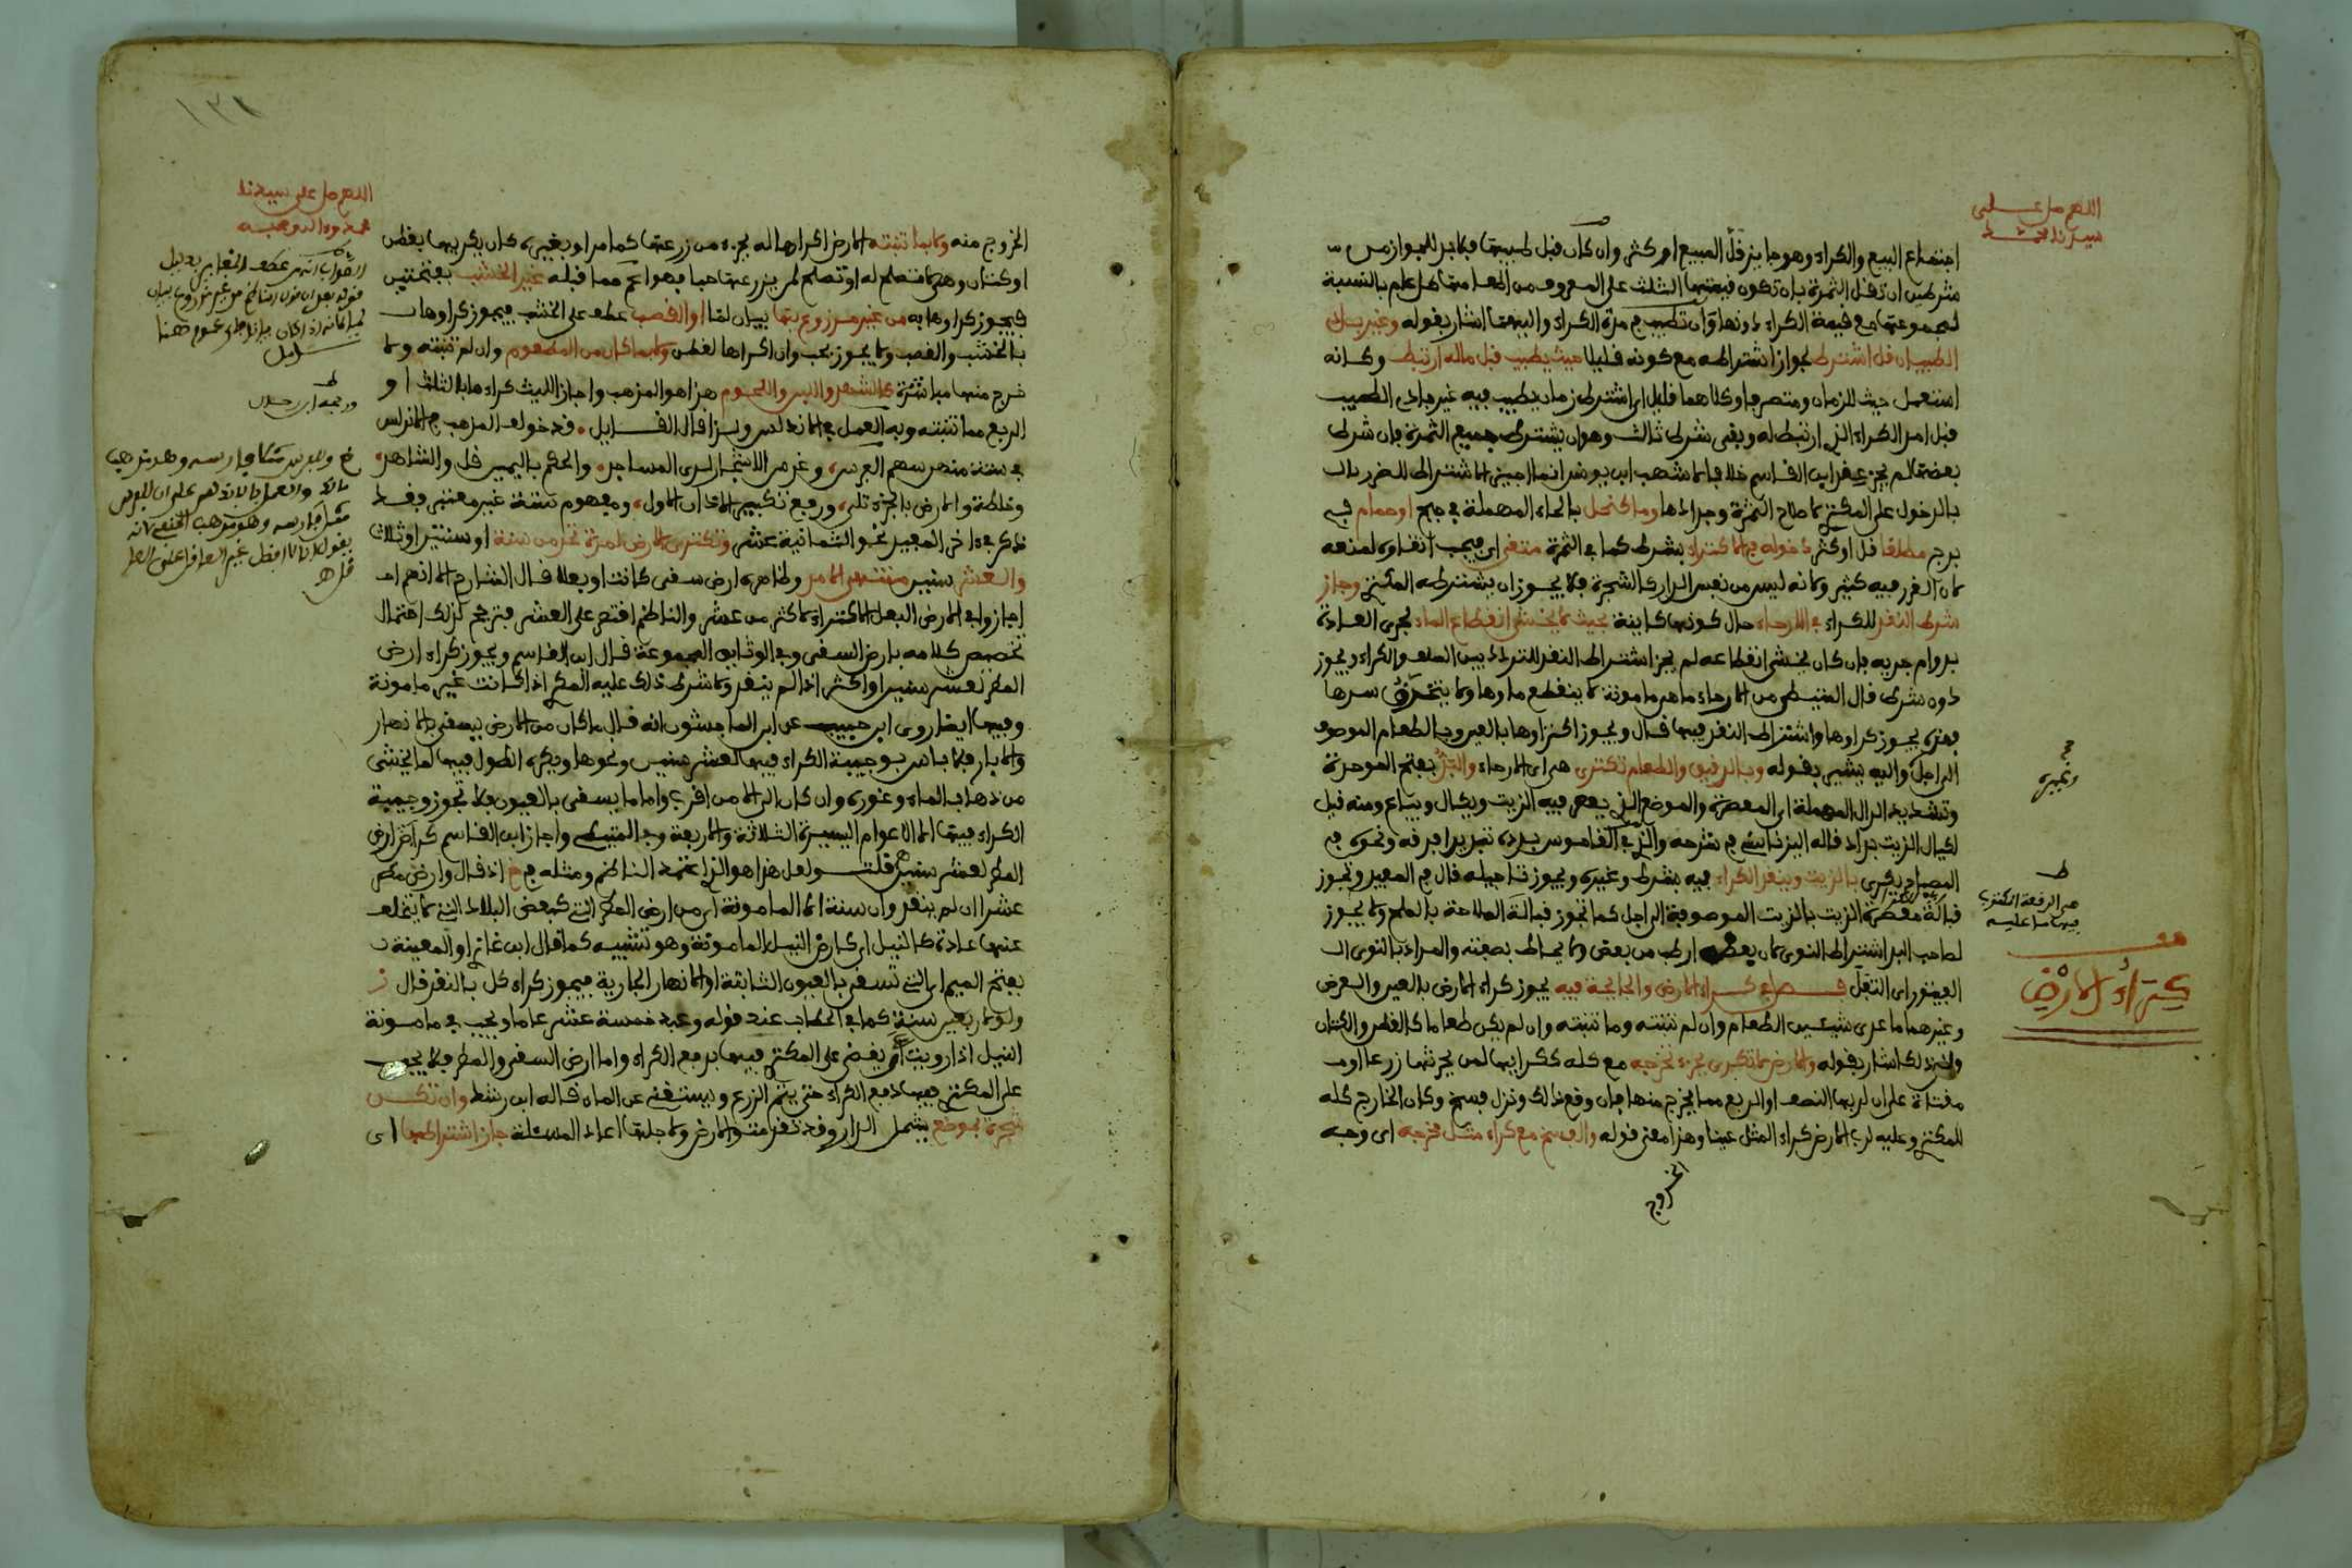 اللهم صل على
سيدنا محمد
اجتماع البيع والكراء وهو جايز قل المبيع او كثر وان كان قبل طيبها فلابد للجواز من
شرطين ان تقل الثمرة بان تكون قيمتها الثلث على المعروف من
لمجموعها مع قيمة الكراء دونها وان تطيب في مدة الكراء واليهما اشار بقوله وغير بادي
الطيب ان قل اشترط لجواز اشتراطه مع كونه قليلا حيث يطيب قبل ماله ارتبط وكانه
استعمل حيث للزمان وكلاهما قليل اي اشترط زمان يطيب فيه غير بادي الطيب
قبل امد الكراء الذي ارتبط له وبقي شرط ثالث وهو ان يشترط جميع الثمرة فان شرط
بعضها لم يجز عند ابن القاسم خلافا لاشهب ابن يونس انما اجيز الاشتراط للضرر بال
بالدخول على المكتري لاصلاح الثمرة وجدادها وما كنحل بالحاء المهملة في جبح او حمام في
برج مطلقا قل او كثر دخوله في الاكتراء بشرط كما في الثمرة
لان الغرر فيه كثير ولانه ليس من نفس الدار كالشجرة فلا يجوز ان يشترطه المكتري وجاز
شرط النقد للكراء في الارحاء حال كونها كاينة بحيث لا يخشى انقطاع الماء لجري العادة
بدوام جريه فان كان يخشى انقطاعه لم يجز اشتراط النقد للتردد بين السلف والكراء ويجوز
دون شرط قال المتيطي من الارحاء ما هي مامونة لا ينقطع ماؤها ولا سدها
فهذه يجوز كراؤها واشتراط النقد فيها قال ويجوز اكتراؤها بالعين وبالطعام الموصوف
الى اجل واليه يشير بقوله وبالدقيق والطعام تكترى هي اي الارحاء والبد بفتح الموحدة
وتشديد الدال المهملة اي المعصرة والموضع الذي يعصر فيه الزيت ويكال ويباع ومنه قيل
لكيال الزيت بداد قاله اليزناسني في شرحه والذي في القاموس بدده تبديدا فرقه ونحوه في
المصباح يكرى بالزيت وينقد الكراء فيه بشرط وغيره ويجوز تاجيله قال في المعين وتجوز
قبالة معصرة الزيت بالزيت الموصوف الى اجل كما تجوز قبالة الملاحة بالملح ولا يجوز
لصاحب البد اشتراط النوى لان بعضه ارطب من بعض ولا يحاط بصفته والمراد بالنوى
الفيتور اي الثفل فصل في كراء الارض والجايحة فيه يجوز كراء الارض بالعين والعرض
وغيرهما ما عدى شيئين الطعام وان لم تنبته وما تنبته وان لم يكن طعاما كالقطن والكتان
والى ذلك اشار بقوله والارض لا تكرى بجزء تخرجه مع كله ككرائها لمن يحرثها زرعا او
مقثاة على ان لربها النصف او الربع مما يخرج منها فان وقع ذلك ونزل فسخ وكان الخارج كله
للمكتري وعليه لرب الارض كراء المثل عينا وهذا معنى قوله والفسخ مع كراء مثل مخرجه اي وجبه
الخروج
وغيره
ط
فيها ما عليه
كتراء الارض
١٣١
اللهم صل على سيدنا
محمد واله وصحبه
الخروج منه ولا بما تنبته الارض اكراها له بجزء من زرعها كما مر او بغيره كان يكريها بقطن
او كتان وهي تصلح له او تصلح لمن يزرعها حبا فهو اعم مما قبله غير الخشب بفتحتين
فيجوز كراؤها به من غير مزروع بها بيان لما او القصب عطف على الخشب فيجوز كراؤها
بالخشب والقصب ولا يجوز بحب وان اكراها لقطن ولا بما كان من المطعوم وان لم تنبته ولا
خرج منها مباشرة كالشهد واللبن واللحوم هذا هو المذهب واجاز الليث كراءها بالثلث او
الربع مما تنبته وبه العمل في الاندلس ولذا قال القايل قد خولف المذهب في الاندلس
في ستة منهن سهم الفرس وغرس الاشجار لدى المساجد والحكم باليمين قل والشاهد
وخلطة والارض بالجزء تلي ورفع تكبير الاذان الاول ومفهوم ستة غير معتبر فقد
ذكر في اخر المعين نحو الثمانية عشر وتكترى الارض لمدة تحد من سنة او سنتين او ثلاث
والعشر سنين منتهى الامد وظاهره ارض سقي كانت او بعلا قال الشارح الا انهم
اجازوا في الارض البعل الاكتراء لاكثر من عشر والناظم اقتصر على العشر فترجح لذلك احتمال
تخصيص كلامه بارض السقي وفي الوثايق المجموعة قال ابن القاسم ويجوز كراء ارض
المطر لعشر سنين او اكثر اذا لم ينقد ولا شرط ذلك عليه المكري اذا كانت غير مامونة
وفيها ايضا روى ابن حبيب عن ابن الماجشون انه قال ما كان من الارض يسقى بالانهار
والابار فلا باس بوجيبة الكراء فيها لعشر سنين ونحوها ويكره الطول فيها لما يخشى
من ذهاب الماء وغوره وان كان الى الامن اقرب واما ما يسقى بالعيون فلا تجوز وجيبة
الكراء فيها الا الاعوام اليسيرة الثلاثة والاربعة وفي المتيطية واجاز ابن القاسم كراء ارض
المطر لعشر سنين قلت ولعل هذا هو الذي اعتمد الناظم ومثله في خ اذ قال وارض مطر
عشرا ان لم ينقد وان سنة الا المامونة اي من ارض المطر التي كبعض البلاد التي لا يتخلف
عنها عادة كالنيل اي كارض النيل المامونة وهو تشبيه كما قال ابن غازي او المعينة
بفتح الميم اي التي تسقى بالعيون الثابتة او الانهار الجارية فيجوز كراء كل بالنقد قال ز
ولو لاربعين سنة كما في الحطاب عند قوله وعبد خمسة عشر عاما ويجب في مامونة
النيل اذا رويت اي يقضى على المكتري فيها بدفع الكراء واما ارض السقي والمطر فلا يجب
على المكتري فيها دفع الكراء حتى يتم الزرع ويستغني عن الماء قاله ابن رشد وان تكن
شجرة بموضع يشمل الدار وقد تقدمت والارض ولاجلها اعاد المسئلة جاز اشتراطها اي